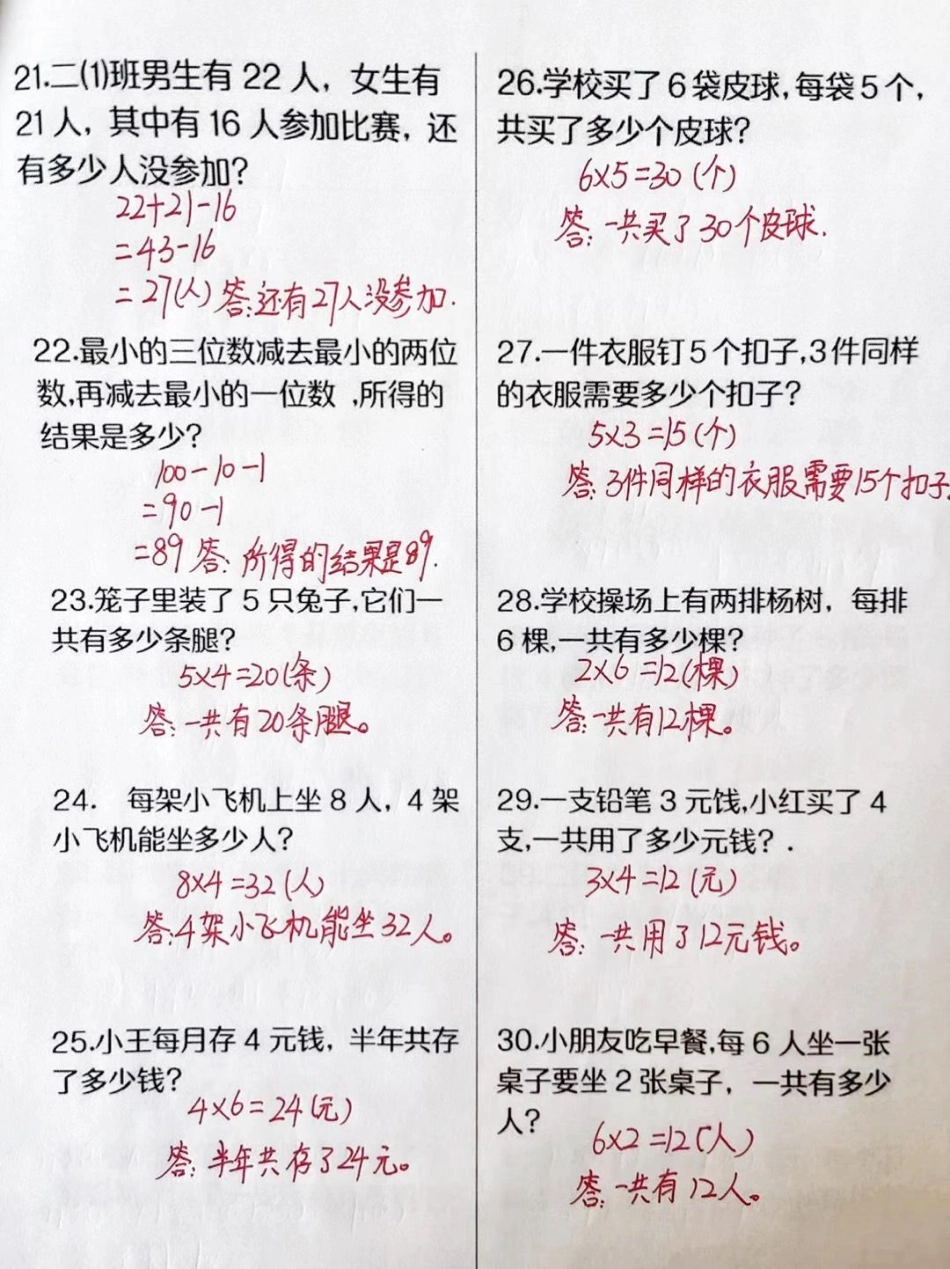 21.二(1)班男生有 22 人，女生有
21 人，其中有 16 人参加比赛，还
有多少人没参加?
22+21-16
=43-16
=27(人) 答:还有27人没参加.
22.最小的三位数减去最小的两位
数,再减去最小的一位数 ,所得的
结果是多少?
100-10-1
=90-1
=89 答: 所得的结果是89.
23.笼子里装了 5 只兔子,它们一
共有多少条腿?
5×4=20(条)
答:一共有20条腿。
24. 每架小飞机上坐 8 人，4 架
小飞机能坐多少人?
8×4=32(人)
答:4架小飞机能坐32人。
25.小王每月存 4 元钱，半年共存
了多少钱?
4×6=24(元)
答:半年共存了24元。
26.学校买了 6 袋皮球,每袋 5 个,
共买了多少个皮球?
6×5=30(个)
答:一共买了30个皮球.
27.一件衣服钉 5 个扣子,3 件同样
的衣服需要多少个扣子?
5×3=15(个)
答:3件同样的衣服需要15个扣子.
28.学校操场上有两排杨树，每排
6 棵,一共有多少棵?
2×6=12(棵)
答:一共有12棵。
29.一支铅笔 3 元钱,小红买了 4
支,一共用了多少元钱? .
3×4=12(元)
答:一共用了12元钱。
30.小朋友吃早餐,每 6 人坐一张
桌子要坐 2 张桌子，一共有多少
人?
6×2=12(人)
答:一共有12人。